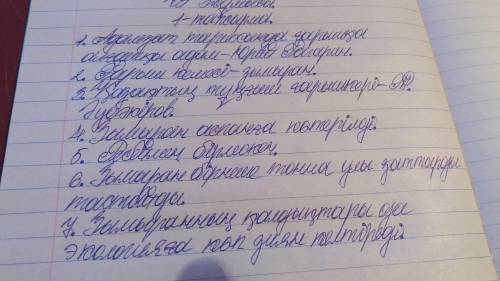 1-тапсырма.
1. Адамзат тарихында ғарышқа
алғашқы адам-Юрий Гагарин.
2. Ғарыш кемесі-зымыран.
3. Қазақтың тұңғыш ғарышкері-Т.
Әубәкіров.
4. Зымыран аспанға көтерілді.
5.
6. Зымыран бірнеше тонна улы заттарды
тастайды.
7. Зымыранның қалдықтары
экологияға көп зиян келтіреді.